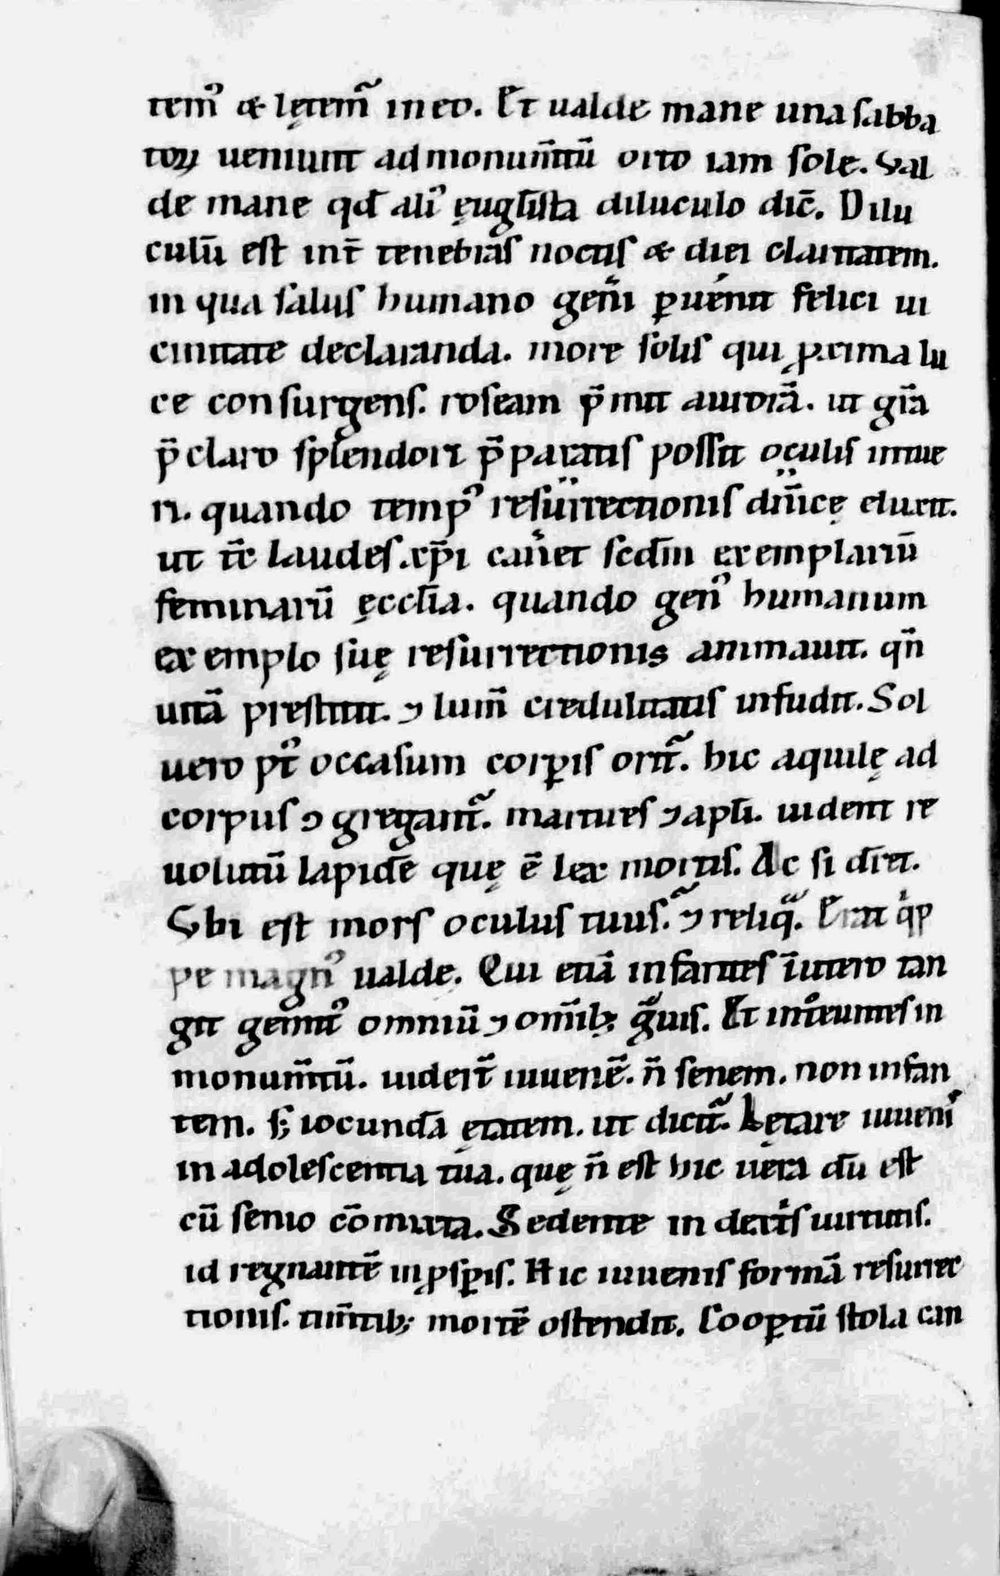 temꝰ & lętem̃ in eo. Et ualde mane una sabba
toꝝ ueniunt ad monum̅tū orto iam sole. Val
de mane qđ aliꝰ ęuglĩsta diluculo dic̅. Dilu
culū est int̅ tenebras noctis & diei claritatem.
in qua salus humano geñi ꝑuenit felici ui
cinitate declaranda. more solis qui ꝓxima lu
ce consurgens. roseam p̃mitt aurorā. ut gr̃a
p̃claro splendori p̃paratis possit oculis intue
ri. quando tempꝰ resurrectionis dñicę eluxit.
ut tc̅ laudes xp̅i caneret scd̅m exemplariū
feminarū ęcclĩa. quando genꝰ humanum
exemplo suę resurrectionis animauit. qñ
uitā prestitit. ⁊ lum̅ credulitatis infudit. Sol
uero pꝰt occasum corꝑis orit᷑. hic aquilę ad
corpus ꝯgregant᷑. martires ⁊ apłi. uident re
uolutū lapidē quę ē lex mortis. Ac si dr̅et.
Vbi est mors oculus tuus. ⁊ reliq̃. Erat qͥp
pe magnꝰ ualde. Qui etiā infantes ī utero tan
git gemitꝰ omniū ⁊ om̅ib; gͣuis. Et introeuntes in
monum̅tū. uidert̅ iuuenē. n̅ senem. non infan
tem. s; iocundā ętatem. ut dicit᷑. Lętare iuueniˢ
in adolescentia tua. quę n̅ est hic uera dū est
cū senio cōmixta. Sedente in dextͥs uirtutis.
id regnantē in ꝓsꝑis. Hic iuuenis formā resurrec
tionis. tim̅tib; mortē ostendit. Cooꝑtū stola can